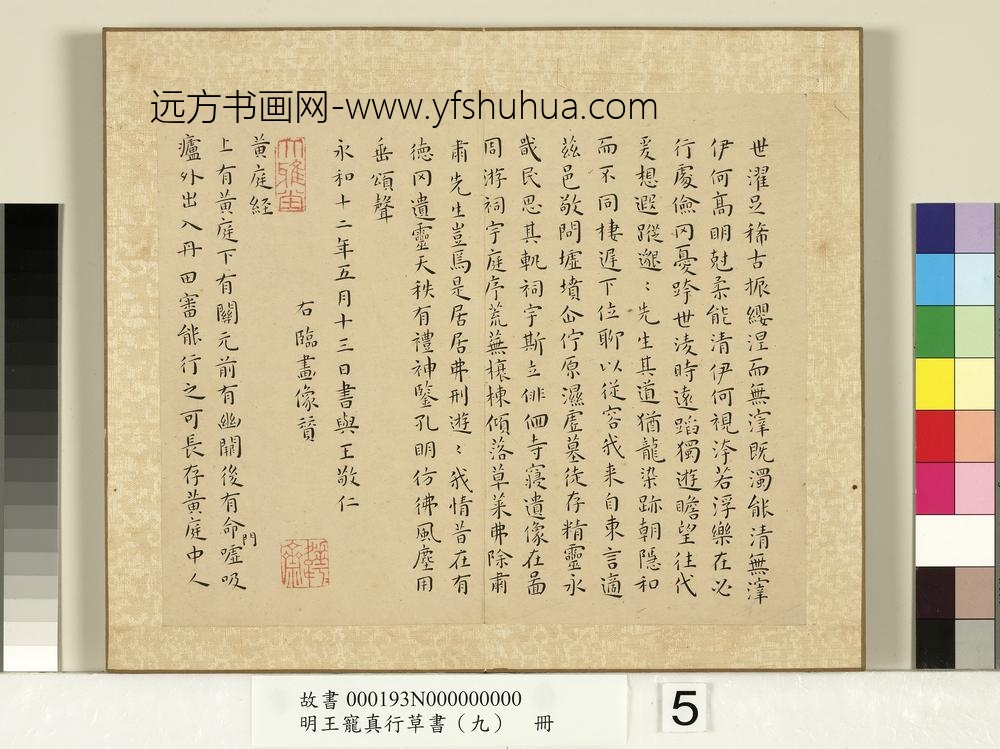 远方书画网-www.yfshuhua.com
世濯足稀古振纓涅而無滓既濁能清無滓
伊何高明尅柔能清伊何視洿若浮樂在必
行處儉罔憂跨世淩時遠蹈獨遊瞻望往代
爰想遐蹤邈〻先生其道猶龍染跡朝隱和
而不同棲遲下位聊以從容我来自東言適
茲邑敬問墟墳企佇原濕虛墓徒存精靈永
戢民思其軌祠宇斯立徘徊寺寢遺像在啚
周游祠宇庭序荒蕪榱棟傾落草萊弗除肅
肅先生豈焉是居居弗刑遊〻我情昔在有
德罔遺靈天秩有禮神鑒孔明彷彿風塵用
垂頌聲
永和十二年五月十三日書與王敬仁
右臨畫像賛
大雅堂
黃庭経
上有黃庭下有關元前有幽闕後有命門噓吸
廬外出入丹田審能行之可長存黃庭中人
故書 000193N000000000
明王寵真行草書（九） 冊
5